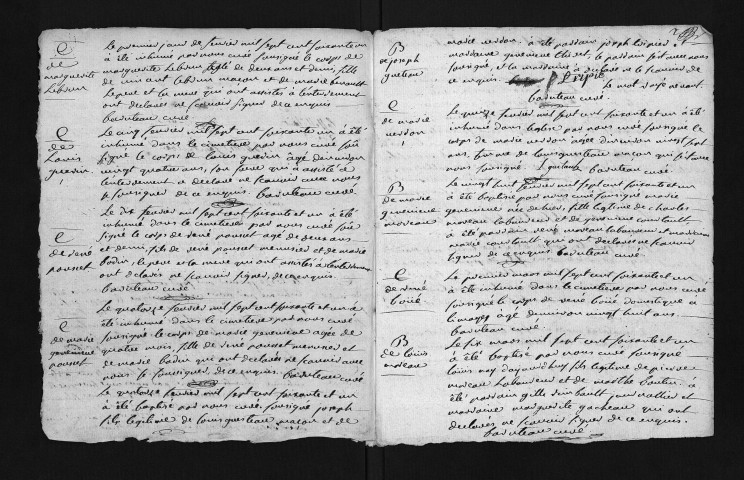 C
de
marguerite
Lebrun
Le premier jour de fevrier mil sept cent soixante un
à été inhumé par nous curé soussigné le corps de
marguerite Lebrun agée de deux ans et demi, fille
de vincent Lebrun macon et de marie
Le pere et la mere qui ont assistés à l'enterrement
ont declarés ne scavoir signer de ce enquis
baruteau curé
C
de
Louis
guerin
Le cinq fevrier mil sept cent soixante et un à été
inhumé dans le cimetiere par nous curé sous
signé le corps de louis guerin agé d'environ
vingt quatre ans, son pere qui a assisté à
l'enterrement a declaré ne scavoir avec nous
soussigner de ce enquis. baruteau curé
C
de rené
pousset
Le dix fevrier mil sept cent soixante et un à été
inhumé dans le cimetiere par nous curé sous
signé le corps de rené pousset agé de deux ans
et demi, fils de rené pousset meunier et de marie
bodin, le pere et la mere qui ont assistés à l'enterrement
ont declarés ne scavoir signer, de ce enquis
baruteau curé
C
de marie
genevieve
pousset
Le quatorze fevrier mil sept cent soixante et un à
été inhumé dans le cimetiere par nous curé
soussigné le corps de marie genevieve agée de
quatre mois fille de rené pousset meunier et
de marie bodin qui ont declarés ne scavoir avec
nous soussigner, de ce enquis. baruteau curé
Le quatorze fevrier mil sept cent soixante et un
à été baptisé par nous curé soussigné joseph
fils legitime de louis questeau macon et de
B
de joseph
questeau
marie verdon: à été parrain joseph
marraine genevieve le parrain s'est avec nous
soussigné, et la marraine a declaré ne le scavoir
de ce enquis.
Le mot rayé ne vaut.
baruteau curé.
C
de marie
verdon
Le quinze fevrier mil sept cent soixante et un à été
inhumé dans l'eglise par nous curé soussigné le
corps de marie verdon agée d'environ vingt sept
ans, femme de louis questeau macon qui
nous soussigné baruteau curé.
B
de marie
genevieve
moreau
Le vingt huit fevrier mil sept cent soixante et un
à été baptisé par nous curé soussigné marie
genevieve née de hier, fille legitime de charles
moreau laboureur et de genevieve
à été parrain rené moreau laboureur et marraine
marie qui ont declarés ne scavoir
signer de ce enquis baruteau curé
C
de rené
boué
Le premier mars mil sept cent soixante et un
à été inhumé dans le cimetiere par nous curé
soussigné le corps de rené boué domestique à
agé d'environ vingt huit ans.
baruteau curé
B
de louis
moreau
Le six mars mil sept cent soixante et un
à été baptisé par nous curé soussigné
louis né d'aujourd'huy fils legitime de pierre
moreau laboureur et de marthe boutin à
été parrain gilles journallier et
marraine marguerite gacheau qui ont
declarés ne scavoir signer de ce enquis.
baruteau curé.